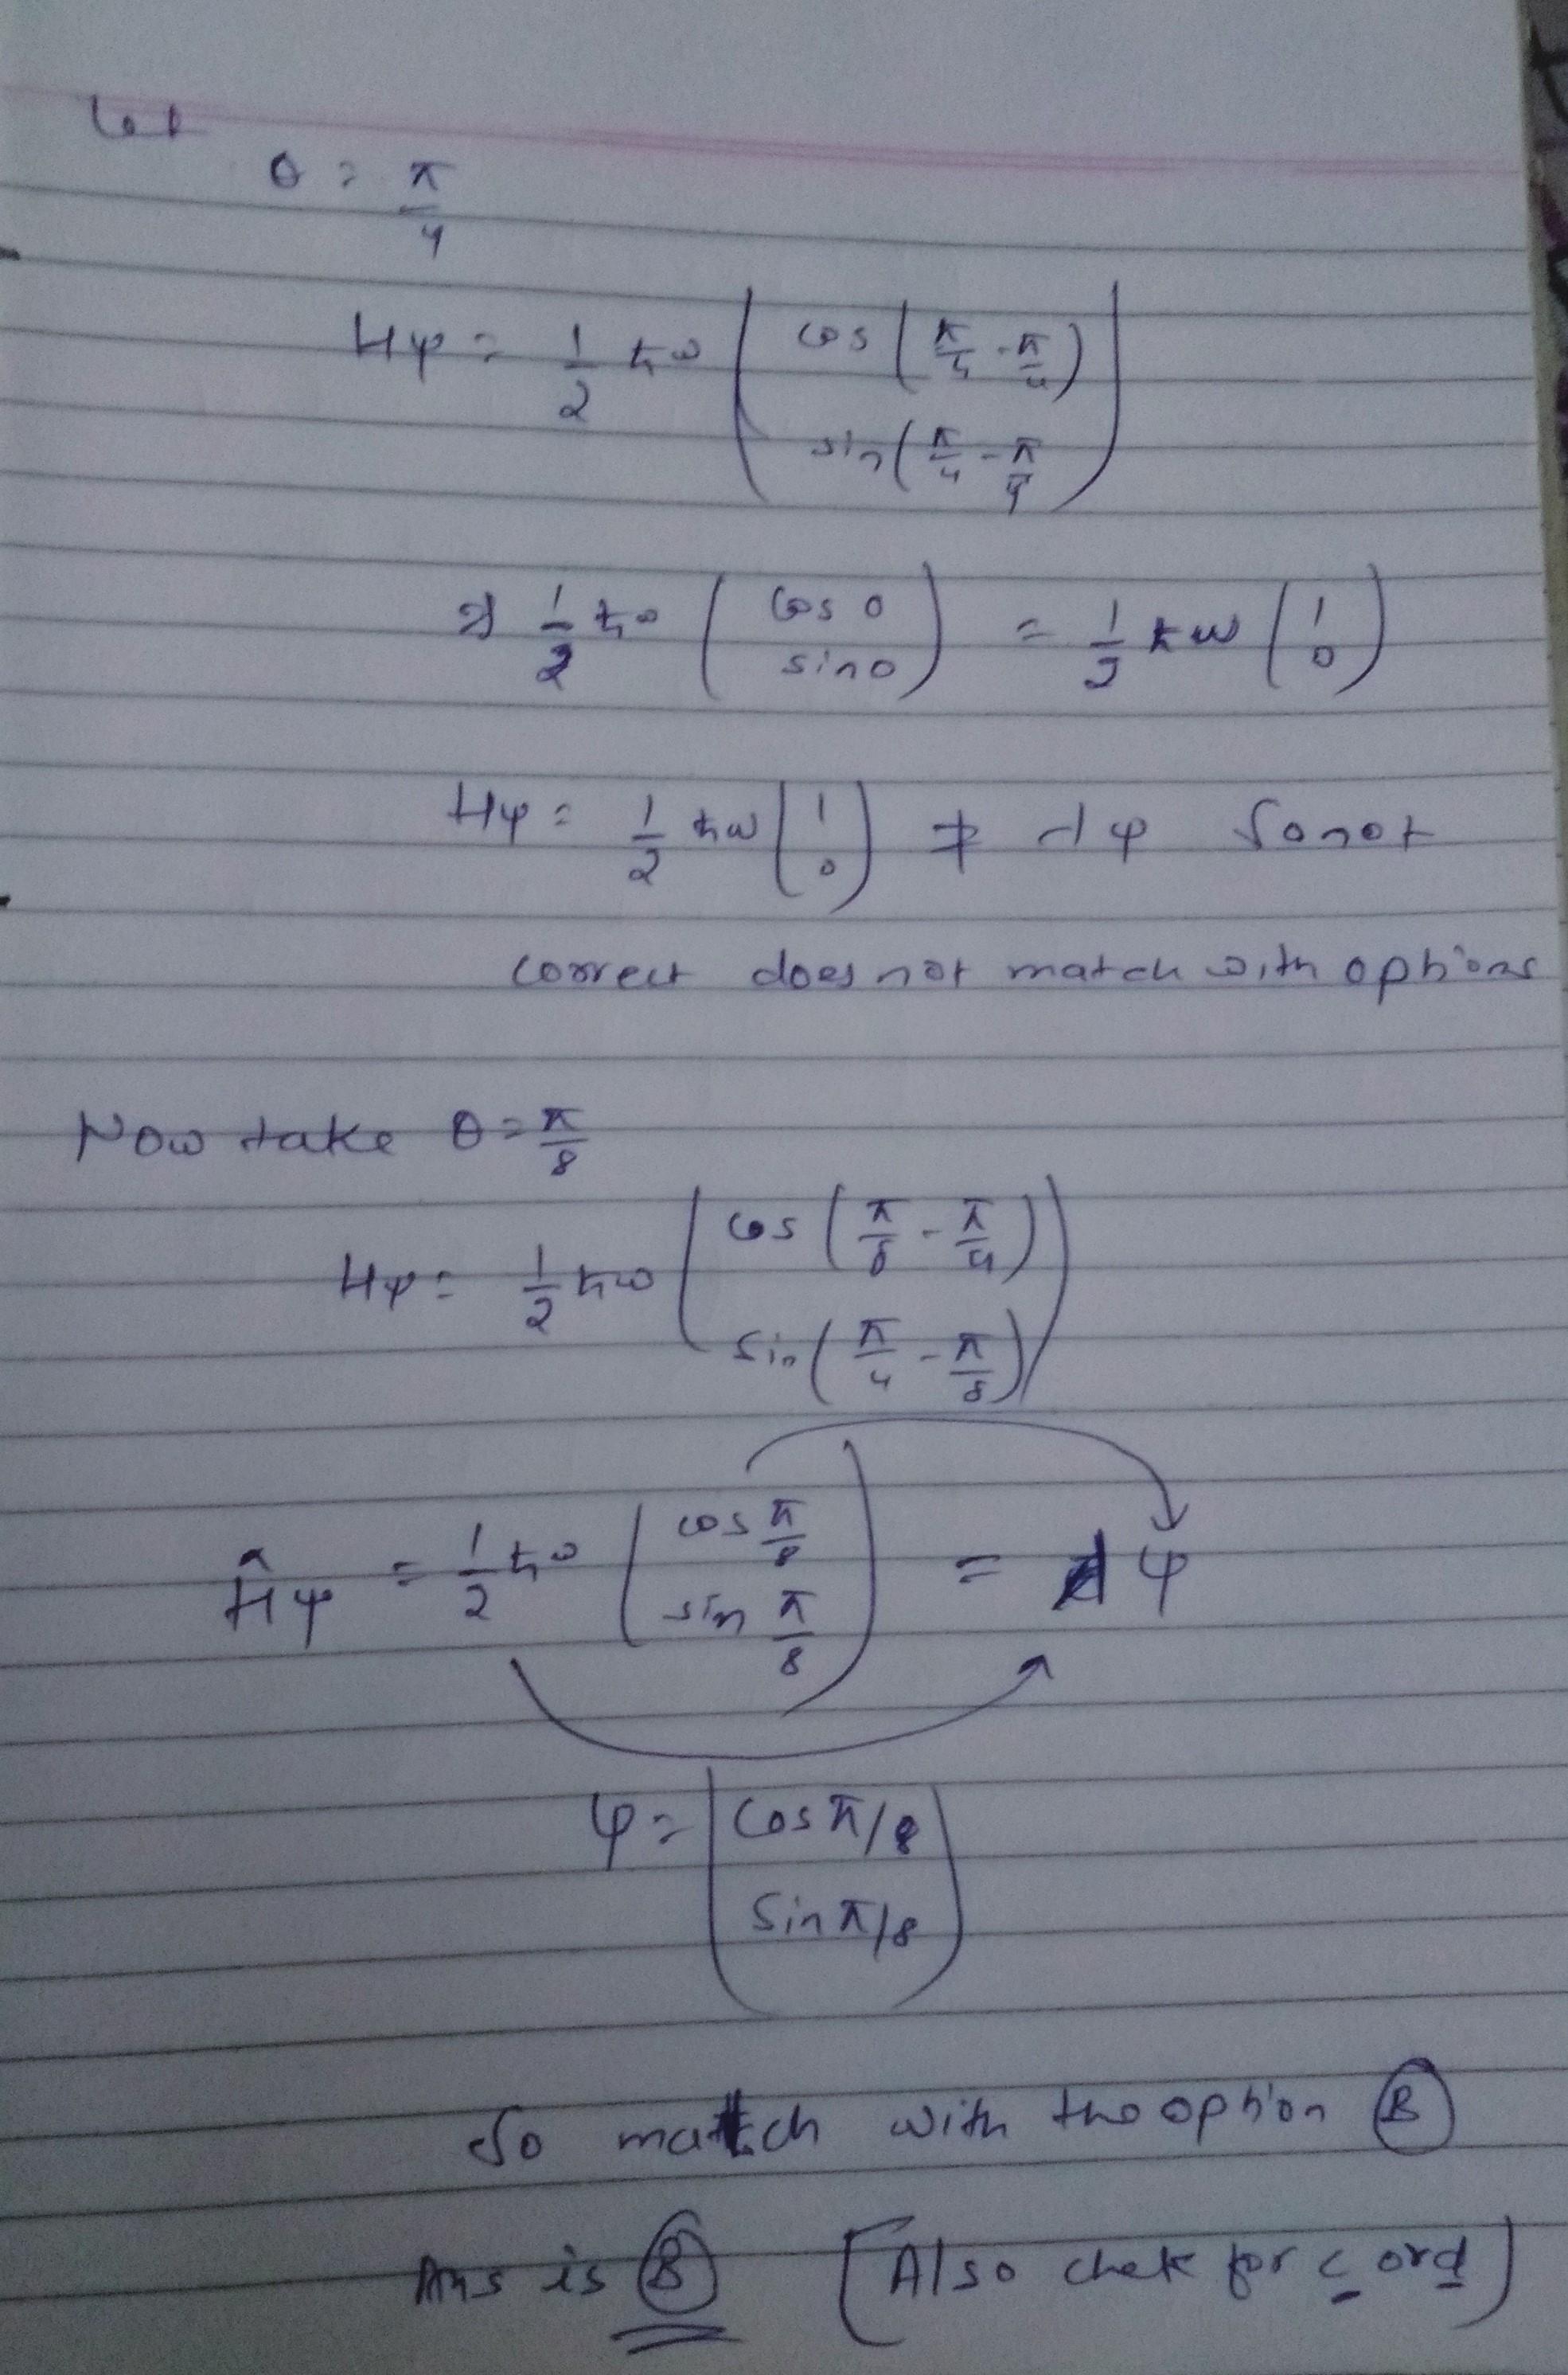 Let
θ = π/4
Hψ = 1/2 ħω ( cos(π/4 - π/4) sin(π/4 - π/4 )
⇒ 1/2 ħω ( cos 0 sin 0 ) = 1/2 ħω ( 1 0 )
Hψ = 1/2 ħω ( 1 0 ) ≠ λψ So not
correct does not match with options
Now take θ = π/8
Hψ = 1/2 ħω ( cos(π/8 - π/4) sin(π/4 - π/8) )
Ĥψ = 1/2 ħω ( cos π/8 sin π/8 ) = λψ
ψ = ( cos π/8 sin π/8 )
So match with the option B
Ans is B [Also chek for c or d]